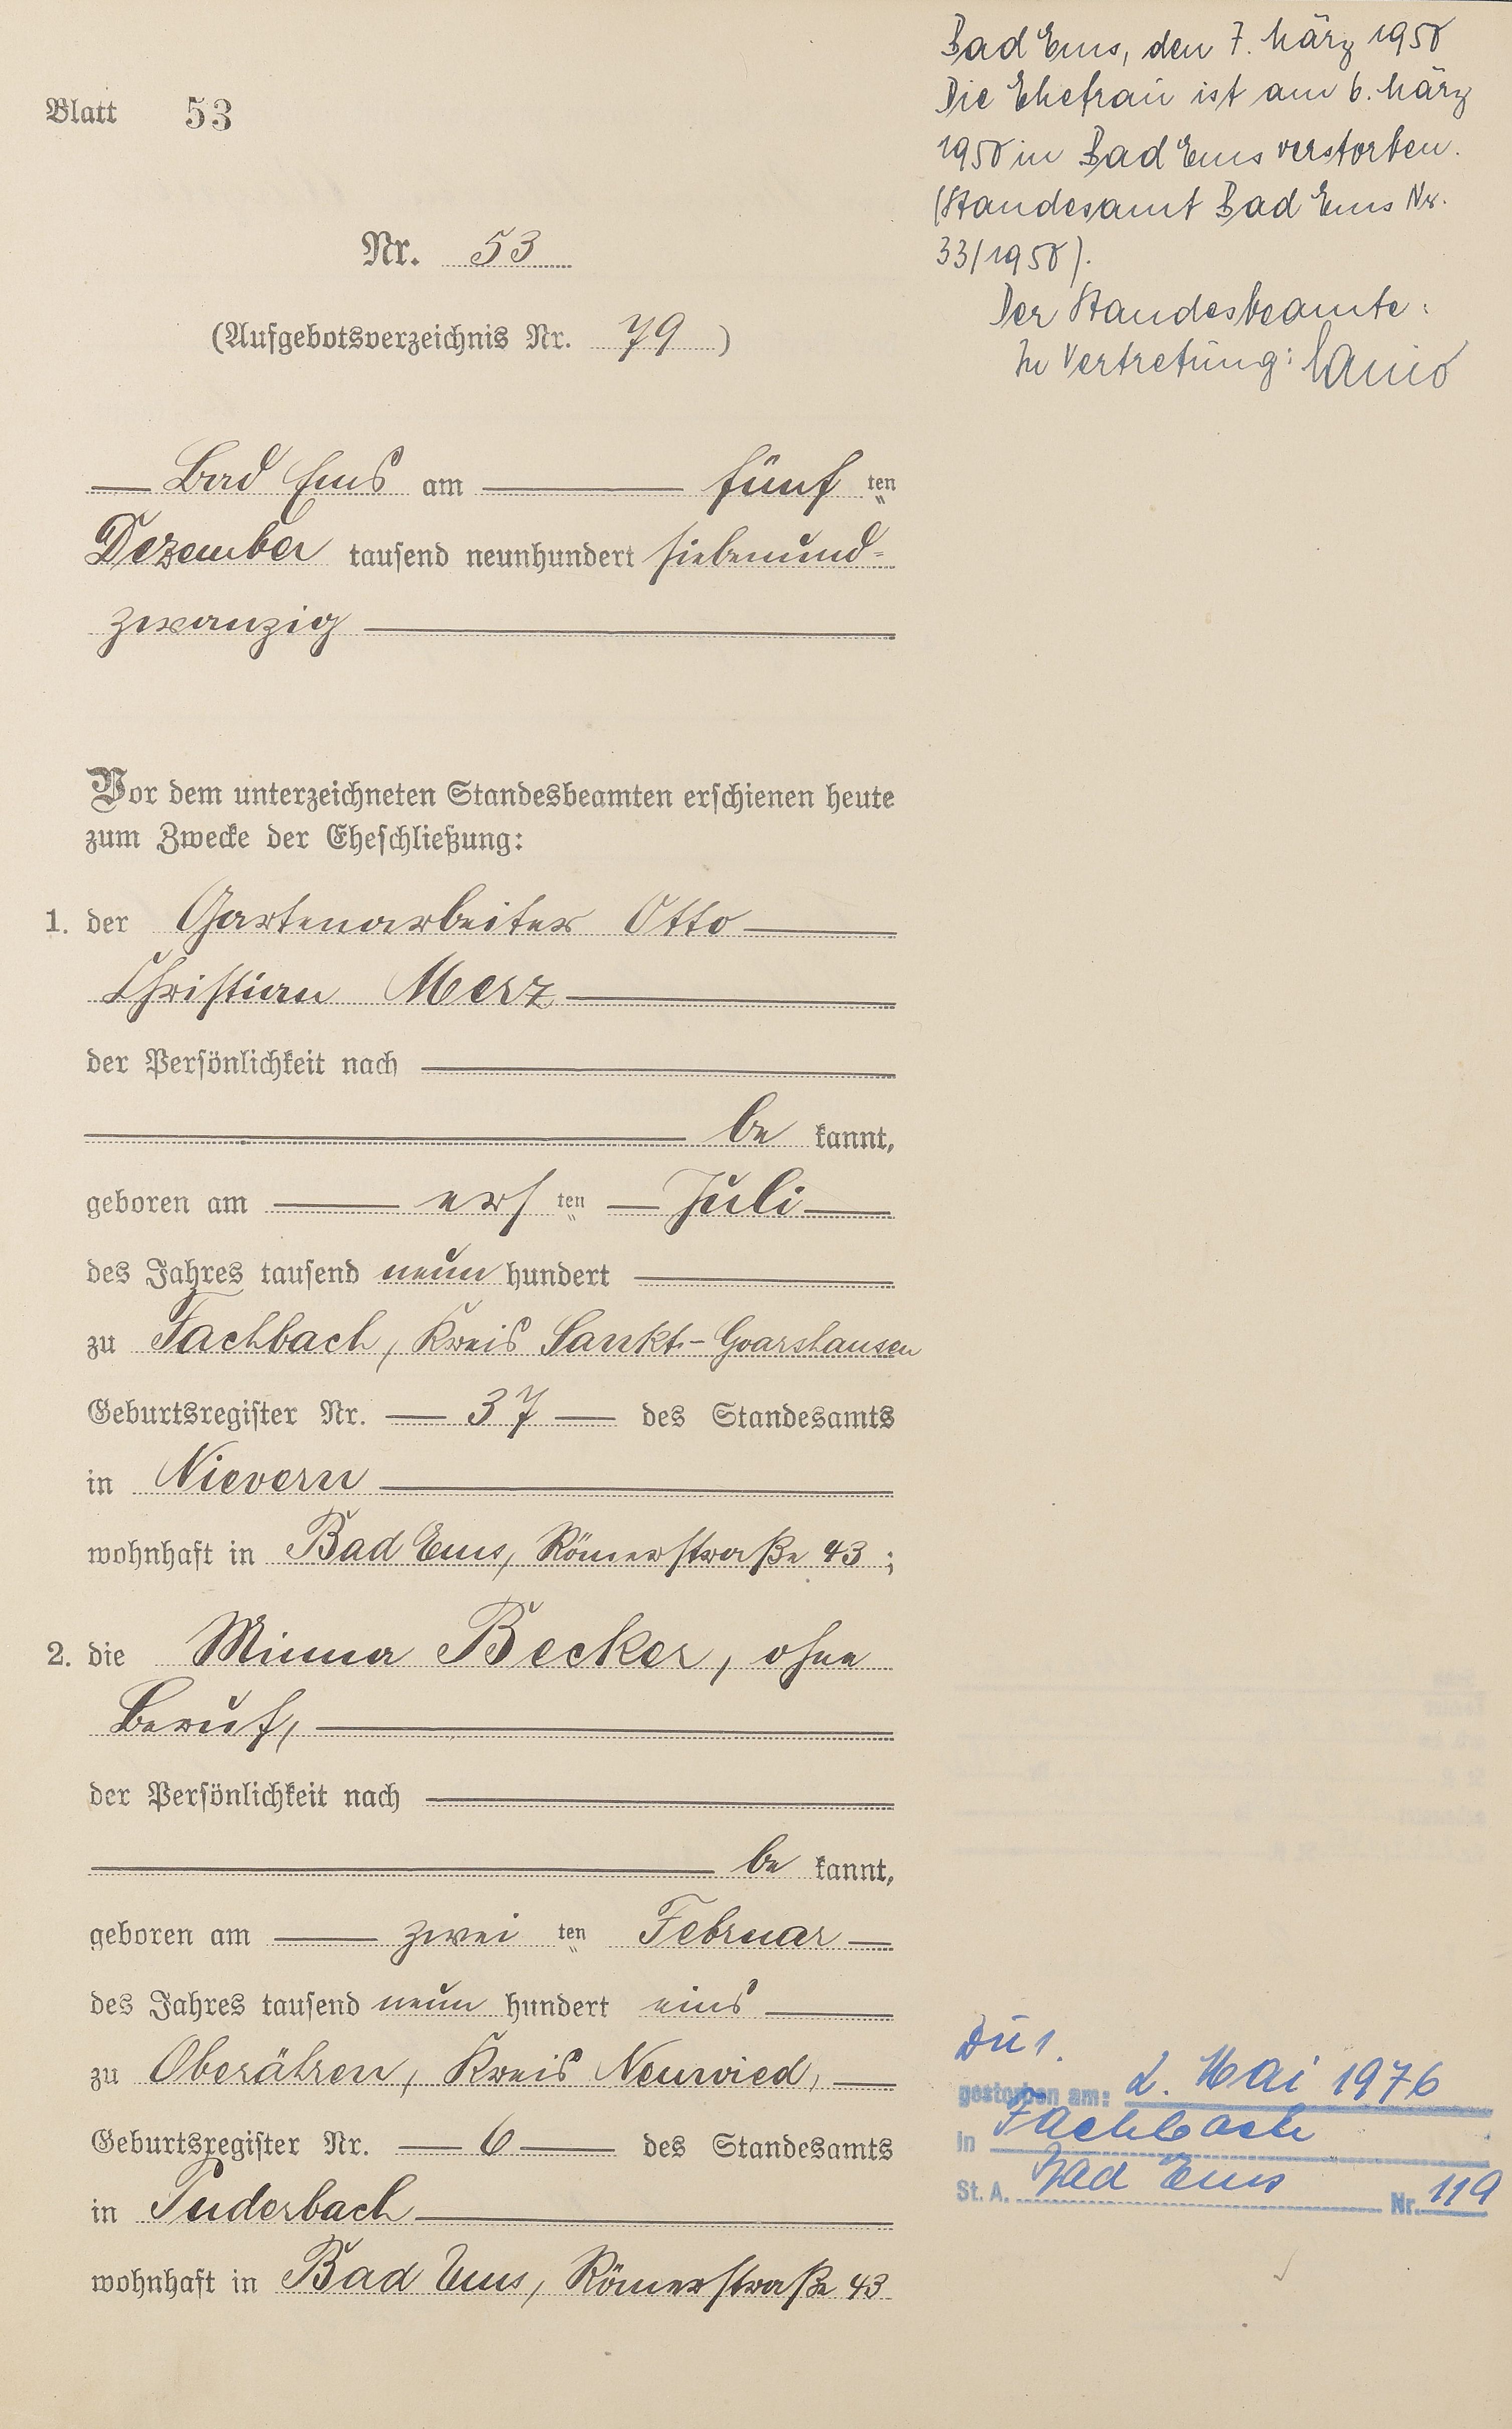 Blatt 53
Nr. 53
(Aufgebotsverzeichnis Nr. 79)
Bad Ems am fünf ten
Dezember tausend neunhundert siebenund-
zwanzig
Vor dem unterzeichneten Standesbeamten erschienen heute
zum Zwecke der Eheschließung:
1. der Gartenarbeiter Otto
Christian Merz
der Persönlichkeit nach
be kannt,
geboren am ers ten Juli
des Jahres tausend neun hundert
zu Fachbach, Kreis Sankt-Goarshausen
Geburtsregister Nr. 37 des Standesamts
in Nievern
wohnhaft in Bad Ems, Römerstraße 43;
2. die Minna Becker, ohne
Beruf,
der Persönlichkeit nach
be kannt,
geboren am zwei ten Februar
des Jahres tausend neun hundert eins
zu Oberähren, Kreis Neuwied,
Geburtsregister Nr. 6 des Standesamts
in Puderbach
wohnhaft in Bad Ems, Römerstraße 43
Bad Ems, den 7. März 1958
Die Ehefrau ist am 6. März
1958 in Bad Ems verstorben.
(Standesamt Bad Ems Nr.
33/1958).
Der Standesbeamte:
In Vertretung:
1.
gestorben am: 2. Mai 1976
in Fachbach
St. A. Bad Ems Nr. 119